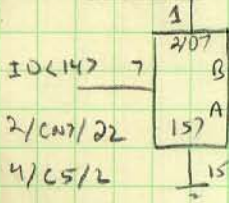 1
2/07
IO<14> 7
B
A
2/CN7/22
157
4/C5/2
15